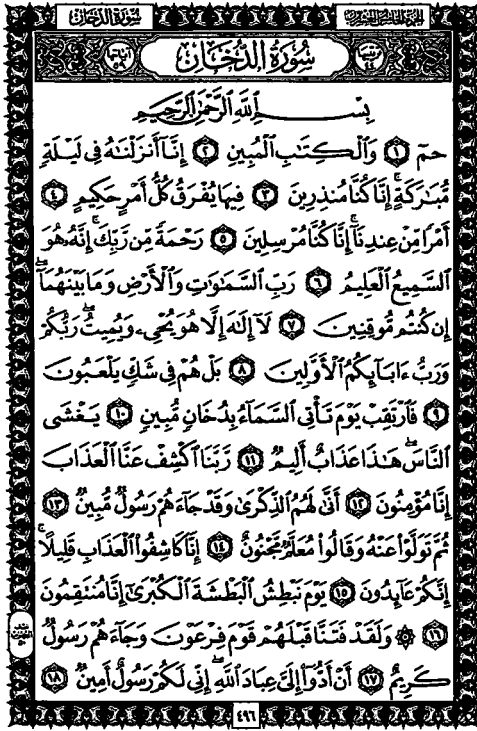 سُورَةُ الدُّخَانِ
سُورَةُ الدُّخَانِ
بِسْمِ اللَّهِ الرَّحْمَٰنِ الرَّحِيمِ
حمٓ ١ وَالْكِتَٰبِ الْمُبِينِ ٢ إِنَّآ أَنزَلْنَٰهُ فِى لَيْلَةٍ
مُّبَٰرَكَةٍ ۚ إِنَّا كُنَّا مُنذِرِينَ ٣ فِيهَا يُفْرَقُ كُلُّ أَمْرٍ حَكِيمٍ ٤
أَمْرًا مِّنْ عِندِنَآ ۚ إِنَّا كُنَّا مُرْسِلِينَ ٥ رَحْمَةً مِّن رَّبِّكَ ۚ إِنَّهُۥ هُوَ
السَّمِيعُ الْعَلِيمُ ٦ رَبِّ السَّمَٰوَٰتِ وَالْأَرْضِ وَمَا بَيْنَهُمَآ ۖ
إِن كُنتُم مُّوقِنِينَ ٧ لَآ إِلَٰهَ إِلَّا هُوَ يُحْىِۦ وَيُمِيتُ ۖ رَبُّكُمْ
وَرَبُّ ءَابَآئِكُمُ الْأَوَّلِينَ ٨ بَلْ هُمْ فِى شَكٍّ يَلْعَبُونَ
٩ فَارْتَقِبْ يَوْمَ تَأْتِى السَّمَآءُ بِدُخَانٍ مُّبِينٍ ١٠ يَغْشَى
النَّاسَ ۖ هَٰذَا عَذَابٌ أَلِيمٌ ١١ رَّبَّنَا اكْشِفْ عَنَّا الْعَذَابَ
إِنَّا مُؤْمِنُونَ ١٢ أَنَّىٰ لَهُمُ الذِّكْرَىٰ وَقَدْ جَآءَهُمْ رَسُولٌ مُّبِينٌ ١٣
ثُمَّ تَوَلَّوْا۟ عَنْهُ وَقَالُوا۟ مُعَلَّمٌ مَّجْنُونٌ ١٤ إِنَّا كَاشِفُوا۟ الْعَذَابِ قَلِيلًا ۚ
إِنَّكُمْ عَآئِدُونَ ١٥ يَوْمَ نَبْطِشُ الْبَطْشَةَ الْكُبْرَىٰٓ إِنَّا مُنتَقِمُونَ
١٦ ۞ وَلَقَدْ فَتَنَّا قَبْلَهُمْ قَوْمَ فِرْعَوْنَ وَجَآءَهُمْ رَسُولٌ
كَرِيمٌ ١٧ أَنْ أَدُّوٓا۟ إِلَىَّ عِبَادَ اللَّهِ ۖ إِنِّى لَكُمْ رَسُولٌ أَمِينٌ ١٨
٤٩٦